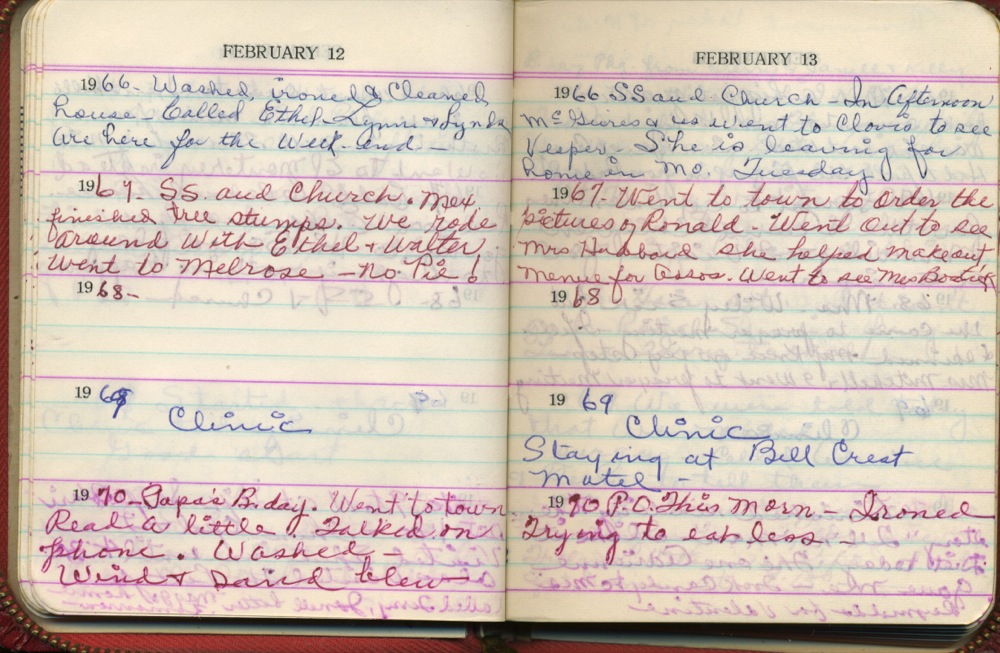 FEBRUARY 12
1966- Washed, ironed & Cleaned
house - Called Ethel - Lynn & Lynda
are here for the Week-end -
1967- SS. and Church. Mex.
finished tree stumps. We rode
around With Ethel + Walter.
Went to Melrose - no Pie!
1968-
1969
Clinic
1970- Papa's B.day. Went to town
Read a little. Talked on
phone. Washed -
Wind & Sand blew
FEBRUARY 13
1966 SS and Church - In Afternoon
& us went to Clovis to see
Vesper. She is leaving for
home in Mo. Tuesday
1967- Went to town to order the
pictures of Ronald - Went out to see
Mrs Hubbard she helped make out
menue for Assos. Went to see Mrs
1968
1969
Clinic
Staying at Bell Crest
Motel -
1970 P.O. This Morn - Ironed
Trying to eat less -